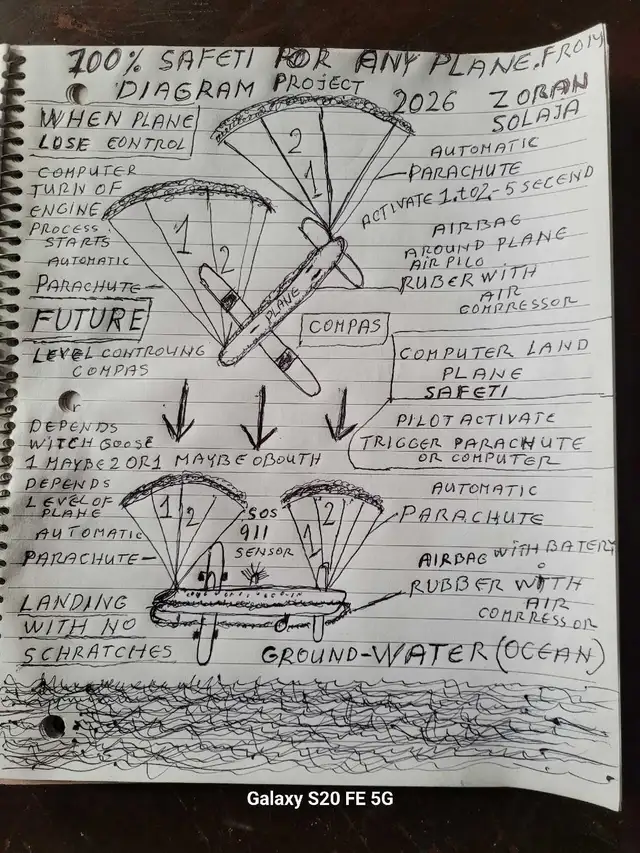 100% SAFETI FOR ANY PLANE. FROM
DIAGRAM PROJECT
2026 ZORAN
SOLAJA
WHEN PLANE
LOSE CONTROL
COMPUTER
TURN OF
ENGINE
PROCESS
STARTS
AUTOMATIC
PARACHUTE
FUTURE
LEVEL CONTROLING
COMPAS
2
1
1
2
PLANE
COMPAS
AUTOMATIC
PARACHUTE
ACTIVATE 1.to2-5 SECEND
AIRBAG
AROUND PLANE
AIR PILO
RUBER WITH
AIR
COMPRRESSOR
COMPUTER LAND
PLANE
SAFETI
PILOT ACTIVATE
TRIGGER PARACHUTE
OR COMPUTER
DEPENDS
WITCH GOOSE
1 MAYBE 2 OR1 MAYBE OBOUTH
DEPENDS
LEVEL OF
PLANE
AUTOMATIC
PARACHUTE
LANDING
WITH NO
SCHRATCHES
1 2
SOS
911
SENSOR
1 2
AUTOMATIC
PARACHUTE
AIRBAG WITH BATERY
RUBBER WITH
AIR
COMPRRESSOR
GROUND-WATER (OCEAN)
Galaxy S20 FE 5G